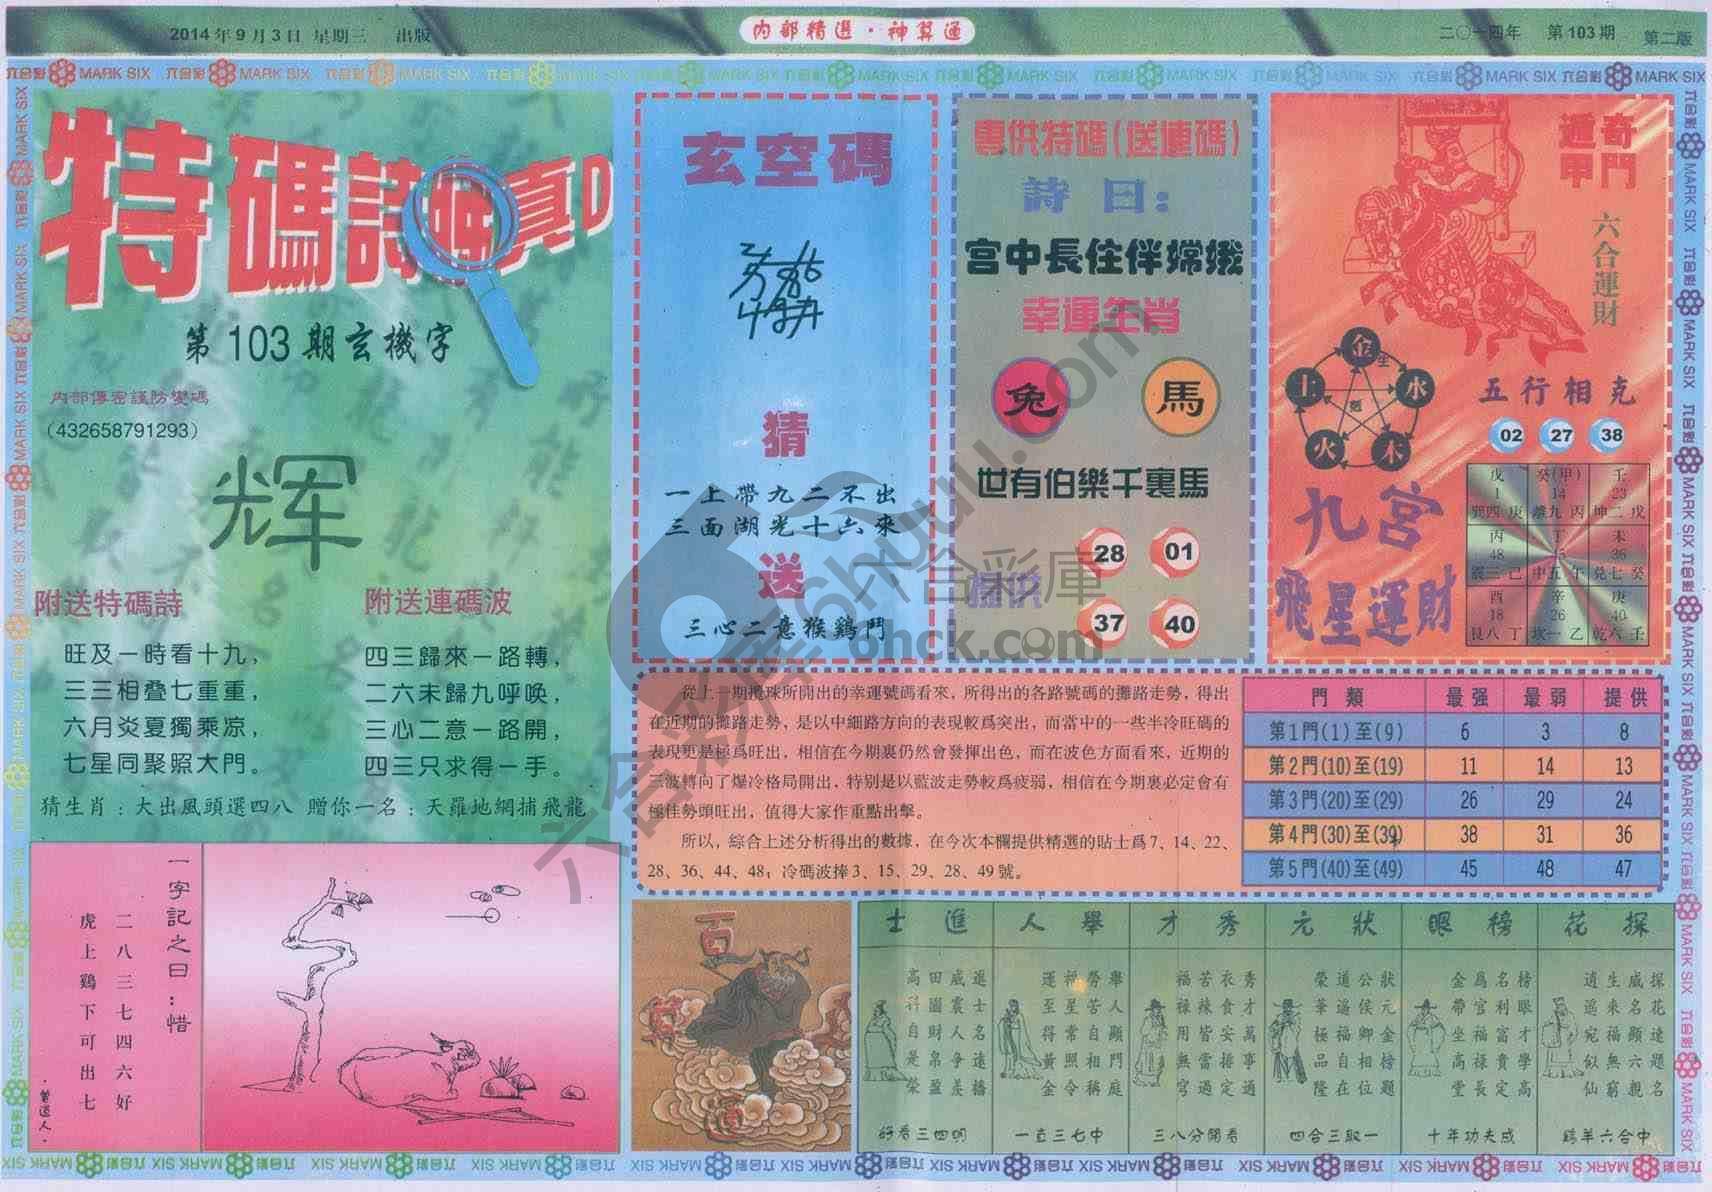 2014年9月3日 星期三 出版
内部精選·神算通
二〇一四年 第103期 第二版
六合彩 MARK SIX
特碼詩
真D
第103期玄機字
内部傳密謹防變碼
(432658791293)
辉
附送特碼詩
旺及一時看十九，
三三相叠七重重，
六月炎夏獨乘凉，
七星同聚照大門。
附送連碼波
四三歸來一路轉，
二六未歸九呼唤，
三心二意一路開，
四三只求得一手。
猜生肖：大出風頭選四八 贈你一名：天羅地網捕飛龍
玄空碼
猜
一上帶九二不出
三面湖光十六來
送
三心二意猴鷄鬥
專供特碼(送連碼)
詩曰：
宮中長住伴嫦娥
幸運生肖
兔 馬
世有伯樂千裏馬
提供
28 01
37 40
奇門
遁甲
六合運財
金 水 木 火 土
五行相克
02 27 38
九宮
飛星運財
戊 癸(甲) 壬
1 14 23
巽四 庚 離九 丙 坤二 戊
丙 丁 未
48 45 36
震三 己 中五 午 兑七 癸
酉 辛 庚
18 26 40
艮八 丁 坎一 乙 乾六 壬
從上一期攪珠所開出的幸運號碼看來，所得出的各路號碼的攤路走勢，得出
在近期的攤路走勢，是以中細路方向的表現較爲突出，而當中的一些半冷旺碼的
表現更是極爲旺出，相信在今期裏仍然會發揮出色，而在波色方面看來，近期的
三波轉向了爆冷格局開出，特别是以藍波走勢較爲疲弱，相信在今期裏必定會有
極佳勢頭旺出，值得大家作重點出擊。
所以，綜合上述分析得出的數據，在今次本欄提供精選的貼士爲7、14、22、
28、36、44、48；冷碼波捧3、15、29、28、49號。
門類 最强 最弱 提供
第1門(1)至(9) 6 3 8
第2門(10)至(19) 11 14 13
第3門(20)至(29) 26 29 24
第4門(30)至(39) 38 31 36
第5門(40)至(49) 45 48 47
一字記之曰：惜
二八三七四六好
虎上鷄下可出七
·曾道人·
探花
探花達題名
威名顯六親
生來福無窮
逍遥宛似仙
中合六羊鷄
榜眼
榜眼才學高
名利富貴定
爲官福禄長
金帶坐高堂
成夫功年十
狀元
狀元金榜題
公侯卿相位
道遥福自在
榮華極品隆
一取三合四
秀才
秀才萬事通
衣食安排定
苦辣皆當過
福禄用無窮
看開分八三
舉人
舉人顯門庭
勞苦自相稱
福星常照令
運至得黄金
中七三直一
進士
進士名遠播
威震人争羨
田園財帛盈
高科自是榮
明四三看好
六合彩庫
ohck.com